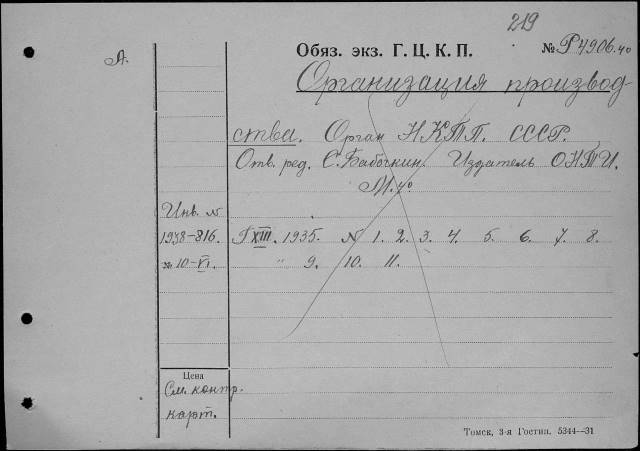 219
Обяз. экз. Г. Ц. К. П. № Р4906.40
А.
Организация производ
ства. Орган НКТП. СССР.
Отв. ред. С. Бабочкин. Издатель ОНТИ.
М. 4°
Инв. №
1938-816. Г XIII. 1935. N 1. 2. 3. 4. 5. 6. 7. 8.
№ 10-VI. " 9. 10. 11.
Цена
См. контр.
карт.
Томск, 3-я Гостип. 5344—31